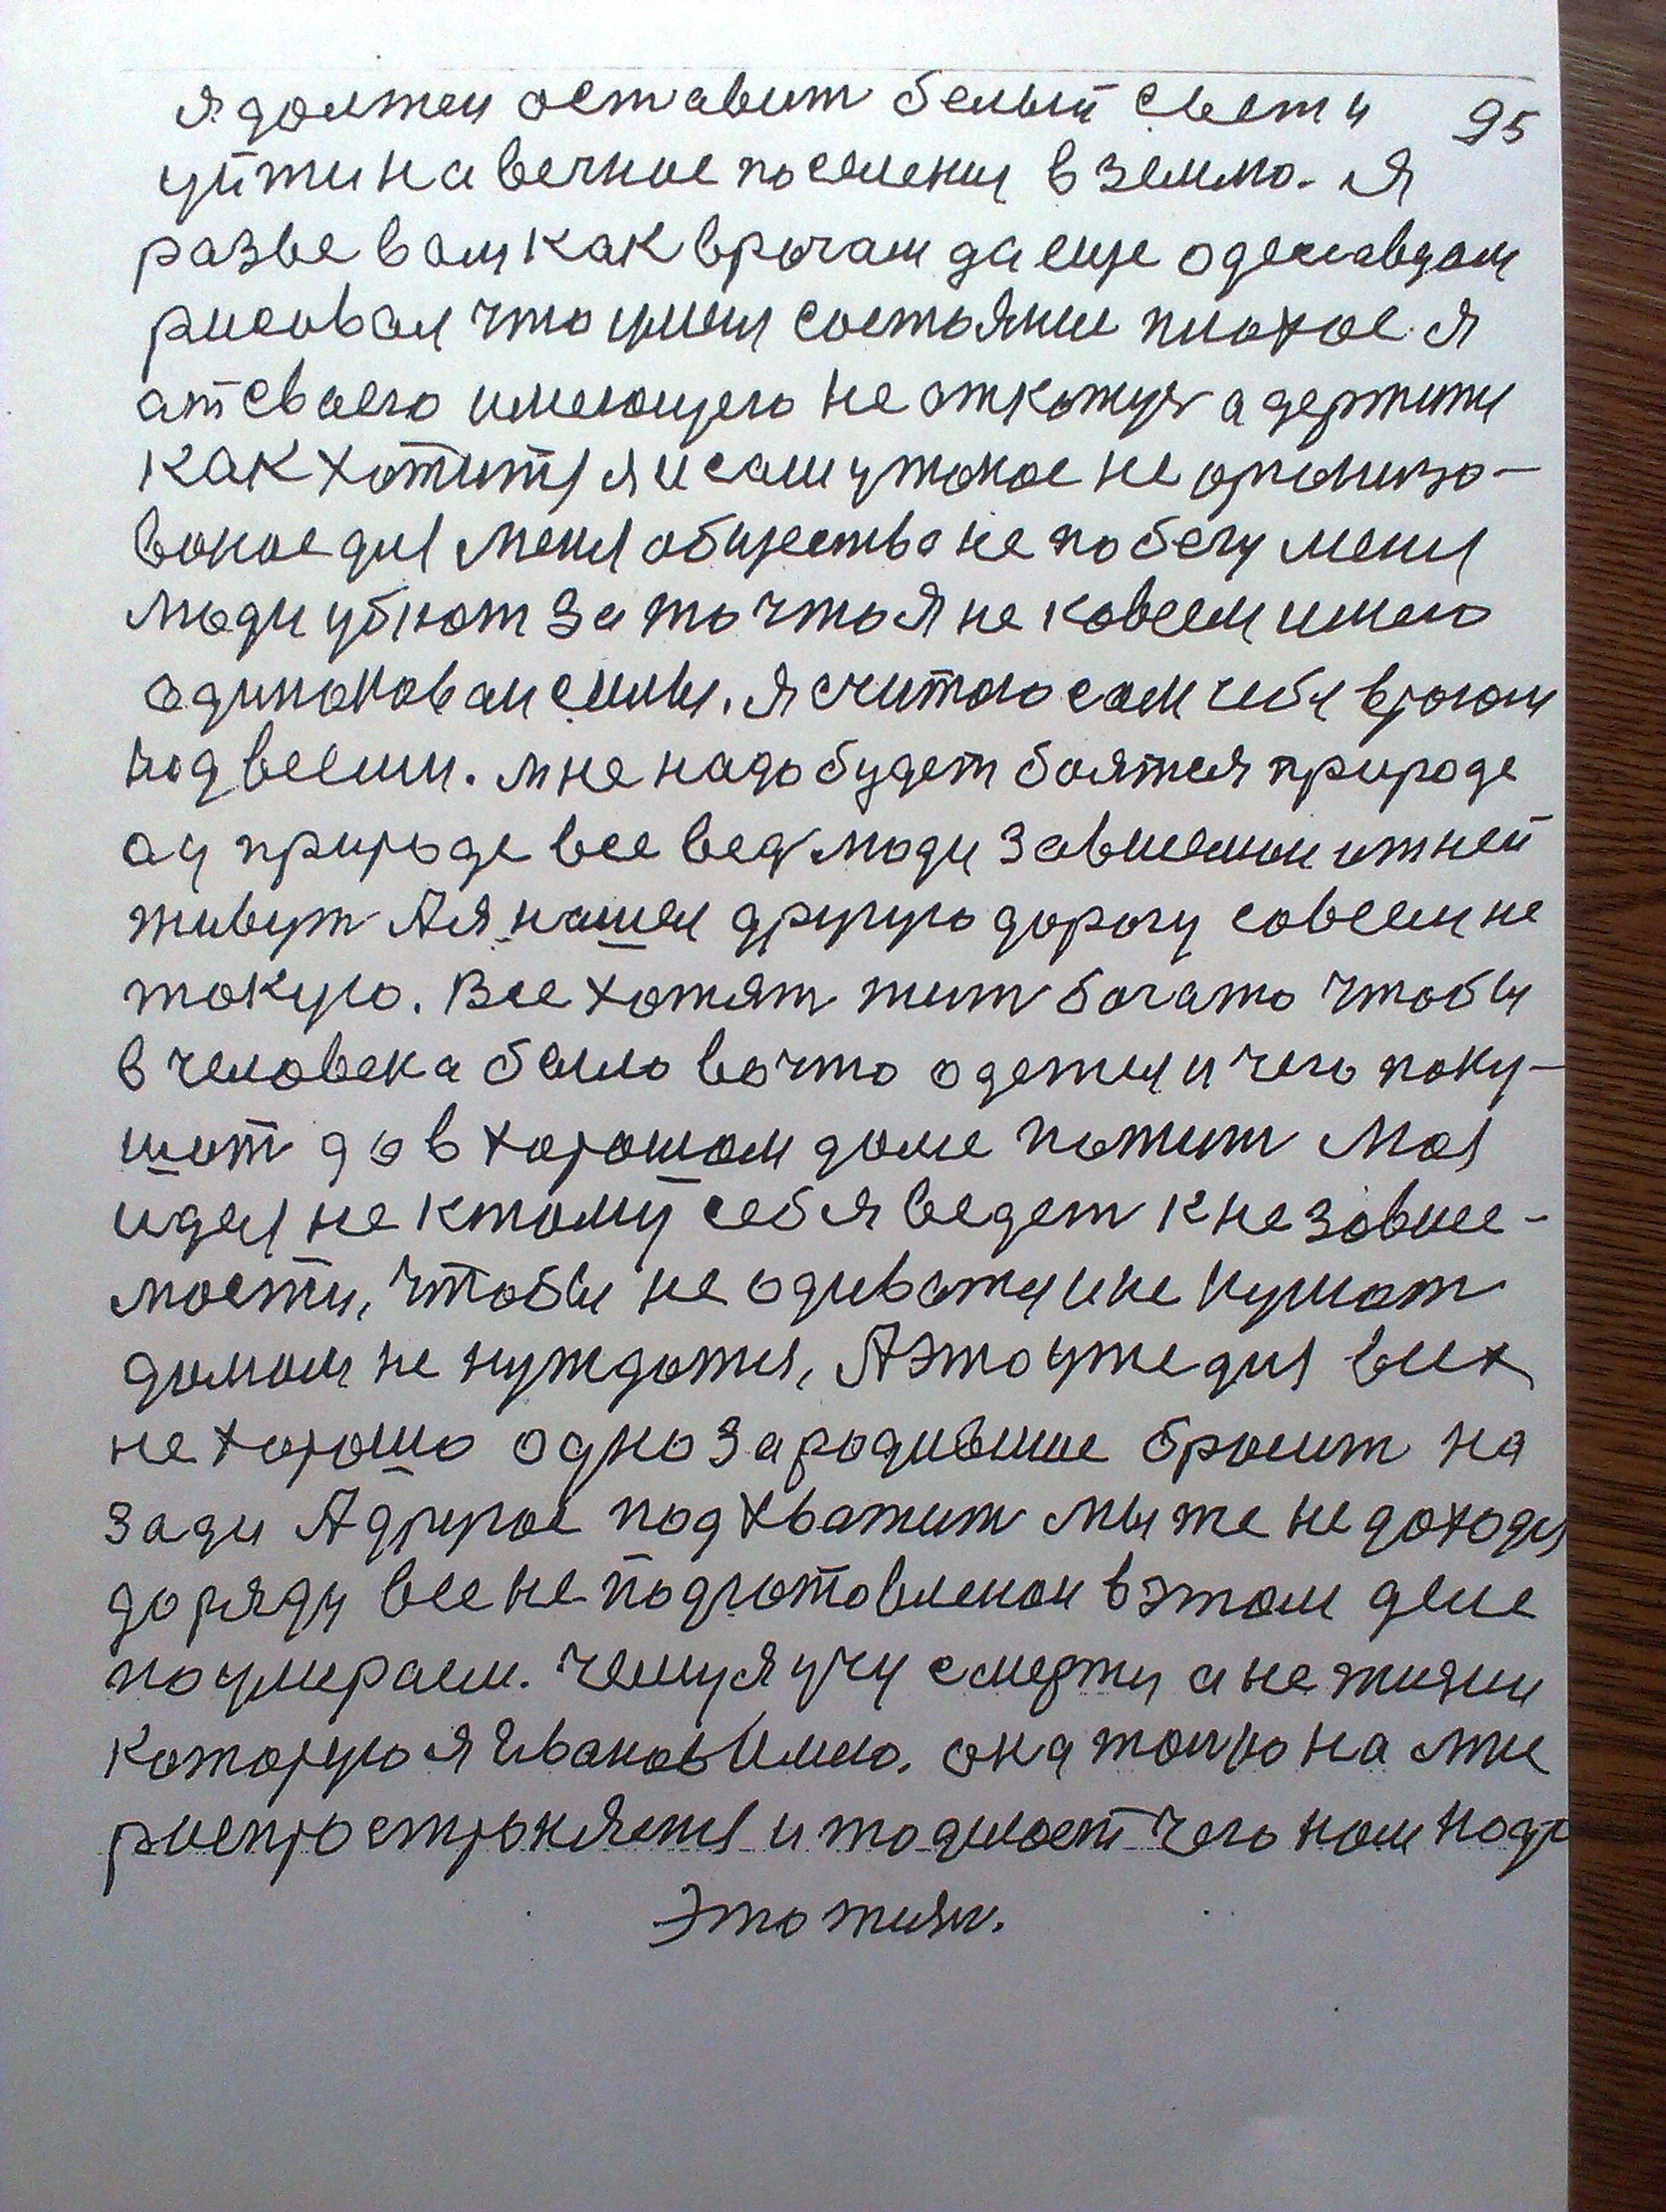 я должен оставит белый свет и 95
уйти на вечное поселения в землю. Я
разве вам как врачам да еще одеснавцам
рисовал что уменя состояние плохое. Я
ат сваего имеющего не откажуся а держити
как хотити я и сам у такое не организо-
ваное для меня общества не побегу меня
люди убют за то что я не ковсем имею
адинаковаи силы. я считаю сам себя врагом
под всеми. мне надо будет боятся природе
а у природе все вед люди зависимаи от ней
живут А я нашел другую дорогу совсем не
такую. Все хотят жит богато чтобы
в человека было вочто одется и чего поку-
шат да в хорошом доме пожит Моя
идея не к тому себя ведет к не зависе-
мости, чтобы не одиватся и не кушат
домом не нуждатся, А это уже для всих
не хорошо одно зародившие бросит на
зади А другое подхватит мы же не доходя
до ряду все не подготовленаи в этом деле
по умираем. Чему я учу смерти а не жизни
которую я Иванов Имею. она только на мне
распространяется и то делает чего нам надо
Это жизн.